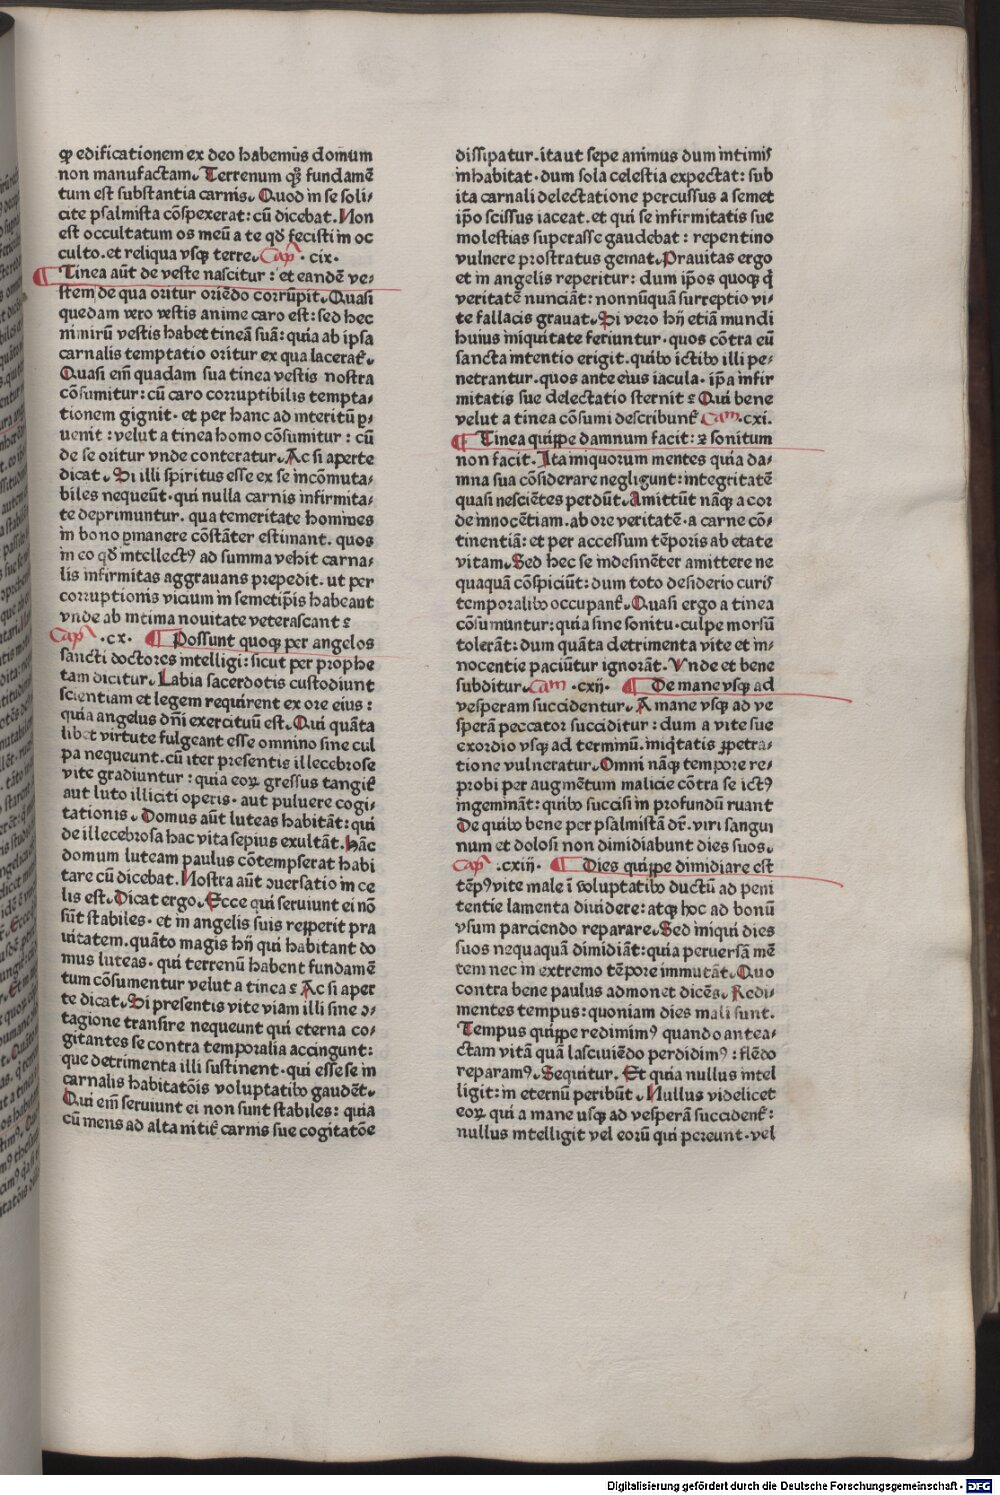 ꝙ edificationem ex deo habemus domum
non manufactam. Terrenum qꝫ fundamē
tum est substantia carnis. Quod in se soli-
cite psalmista cōspexerat: cū dicebat. Non
est occultatum os meū a te qď fecisti in oc
culto. et reliqua vsqꝫ terre. Capᵐ · cix ·
Tinea aūt de veste nascitur : et eandē ve-
stem de qua oritur oriēdo corrūpit. Quasi
quedam vero vestis anime caro est: sed hec
nimirū vestis habet tineā suā: quia ab ipsa
carnalis temptatio oritur ex qua laceraƭ.
Quasi em̄ quadam sua tinea vestis nostra
cōsumitur: cū caro corruptibilis tempta-
tionem gignit · et per hanc ad interitū ꝑ-
uenit : velut a tinea homo cōsumitur : cū
de se oritur vnde conteratur. Ac si aperte
dicat. Si illi spiritus esse ex se incōmuta-
biles nequeūt · qui nulla carnis infirmita-
te deprimuntur. qua temeritate homines
in bono ꝑmanere cōstāter estimant. quos
in eo qď intellectꝰ ad summa vehit carna-
lis infirmitas aggrauans prepedit. ut per
corruptionis vicium in semetip̄is habeant
vnde ab intima nouitate veterascant ꝛ
Capᵐ · cx · Possunt quoqꝫ per angelos
sancti doctores intelligi: sicut per prophe
tam dicitur. Labia sacerdotis custodiunt
scientiam et legem requirent ex ore eius :
quia angelus dn̄i exercituū est. Qui quāta
libet virtute fulgeant esse omnino sine cul
pa nequeunt. cū iter presentis illecebrose
vite gradiuntur : quia eoꝝ gressus tangiƭ
aut luto illiciti operis · aut puluere cogi-
tationis. Domus aūt luteas habitāt: qui
de illecebrosa hac vita sepius exultāt. Hāc
domum luteam paulus cōtempserat habi
tare cū dicebat. Nostra aūt ɔuersatio in ce
lis est. Dicat ergo. Ecce qui seruiunt ei nō
sūt stabiles · et in angelis suis reꝑperit pra
uitatem. quāto magis hij qui habitant do
mus luteas · qui terrenū habent fundamē
tum cōsumentur velut a tinea ꝛ Ac si aper
te dicat. Si presentis vite viam illi sine ɔ-
tagione transire nequeunt qui eterna co-
gitantes se contra temporalia accingunt:
que detrimenta illi sustinent · qui esse se in
carnalis habitatōis voluptatibꝰ gaudēt.
Qui em̄ seruiunt ei non sunt stabiles : quia
cū mens ad alta nitiƭ carnis sue cogitatōe
dissipatur. ita ut sepe animus dum intimis
inhabitat · dum sola celestia expectat : sub
ita carnali delectatione percussus a semet
ip̄o scissus iaceat. et qui se infirmitatis sue
molestias superasse gaudebat : repentino
vulnere prostratus gemat. Prauitas ergo
et in angelis reperitur : dum ip̄os quoqꝫ q̄
veritatē nunciāt: nonnūquā surreptio vi-
te fallacis grauat. Si vero hij etiā mundi
huius iniquitate feriuntur · quos cōtra eū
sancta intentio erigit. quibꝰ ictibꝰ illi pe-
netrantur. quos ante eius iacula · ip̄a infir
mitatis sue delectatio sternit ꝛ Qui bene
velut a tinea cōsumi describunƭ Cam. cxi.
Tinea quiꝑpe damnum facit: ꝛ sonitum
non facit. Ita iniquorum mentes quia da-
mna sua cōsiderare negligunt: integritatē
quasi nesciētes perdūt. Amittūt nāqꝫ a cor
de innocētiam. ab ore veritatē · a carne cō-
tinentiā: et per accessum tēporis ab etate
vitam. Sed hec se indesinēter amittere ne
quaquā cōspiciūt: dum toto desiderio curis
temporalibꝰ occupanƭ. Quasi ergo a tinea
cōsumuntur: quia sine sonitu · culpe morsū
tolerāt: dum quāta detrimenta vite et in-
nocentie paciūtur ignorāt. Vnde et bene
subditur. Cam · cxij · De mane vsqꝫ ad
vesperam succidentur. A mane vsqꝫ ad ve
sperā peccator succiditur : dum a vite sue
exordio vsqꝫ ad terminū. iniq̇tatis ꝑpetra-
tione vulneratur. Omni nāqꝫ tempore re-
probi per augmētum malicie cōtra se ictꝰ
ingemināt: quibꝰ succisi in profundū ruant
De quibꝰ bene per psalmistā dr̄. viri sangui
num et dolosi non dimidiabunt dies suos.
Capᵐ . cxiij · Dies quiꝑpe dimidiare est
tēpꝰ vite male ī voluptatibꝰ ductū ad peni
tentie lamenta diuidere: atqꝫ hoc ad bonū
vsum parciendo reparare. Sed iniqui dies
suos nequaquā dimidiāt: quia peruersā mē
tem nec in extremo tēpore immutāt. Quo
contra bene paulus admonet dicēs. Redi-
mentes tempus: quoniam dies mali sunt.
Tempus quiꝑpe redimimꝰ quando antea-
ctam vitā quā lasciuiēdo perdidimꝰ : flēdo
reparamꝰ. Sequitur. Et quia nullus intel
ligit: in eternū peribūt. Nullus videlicet
eoꝝ qui a mane vsqꝫ ad vesperā succidenƭ:
nullus intelligit vel eorū qui pereunt · vel
Digitalisierung gefördert durch die Deutsche Forschungsgemeinschaft - DFG